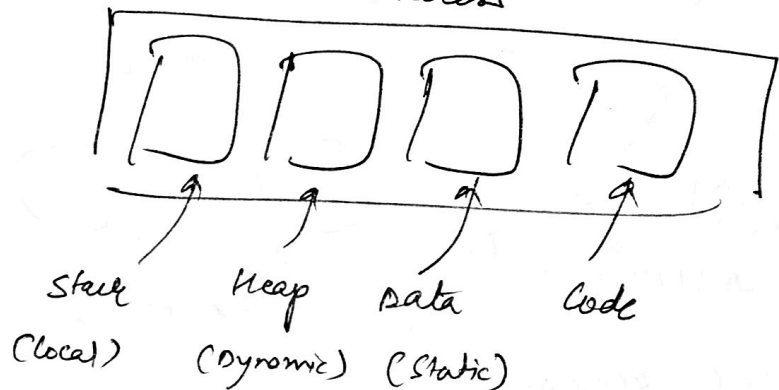 Stack Heap Data Code
(Local) (Dynamic) (Static)